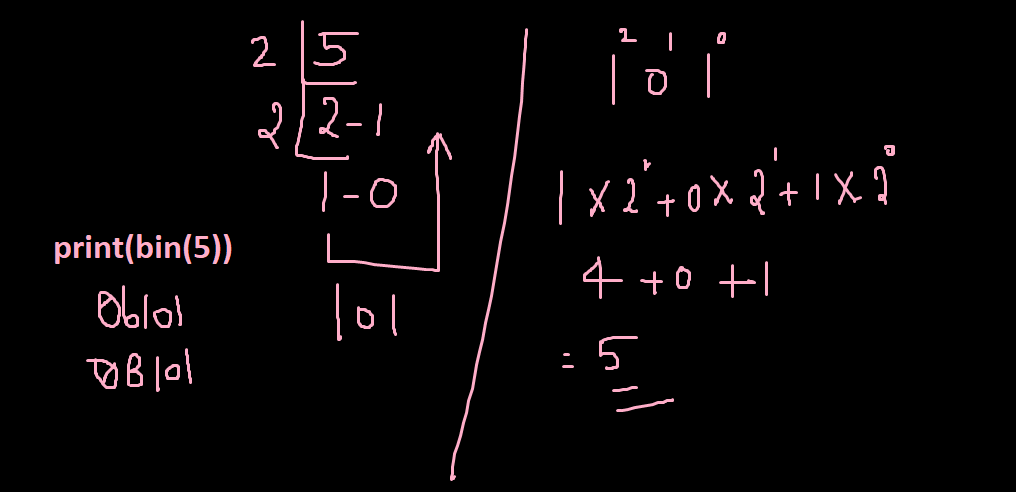 2 | 5
2 | 2 - 1
1 - 0
print(bin(5))
0b101
0B101
101
2 1 0
1 0 1
1 × 2² + 0 × 2¹ + 1 × 2⁰
4 + 0 + 1
= 5